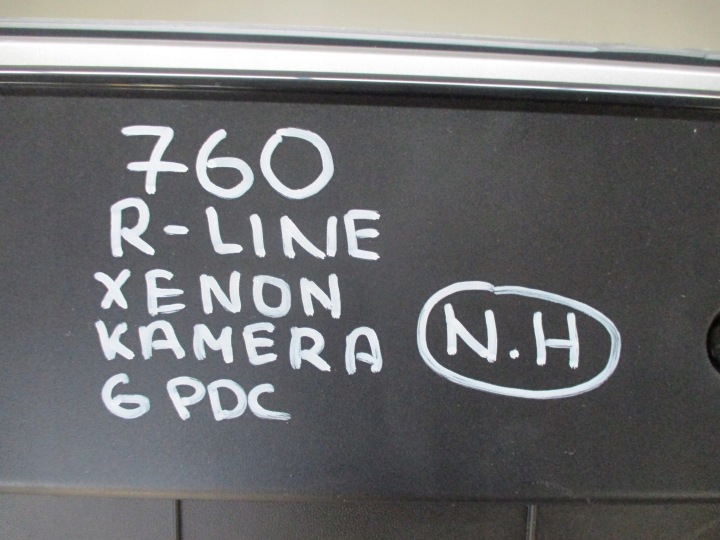 760
R-LINE
XENON
KAMERA
6 PDC
N.H